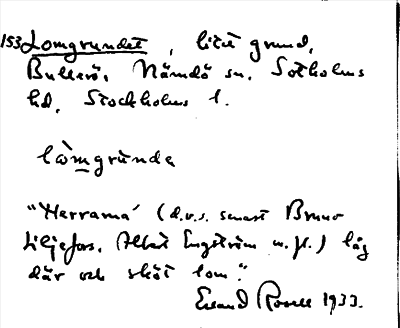 153 Lomgrundet, litet grund,
Bullerö, Nämdö sn, Sotholms
hd, Stockholms l.
lòmgrùnde
"Herrarna (d.v.s. senast Bruno
Liljefors, Albert Engström m.fl.) låg
där och sköt lom."
Erland Rosell 1933.